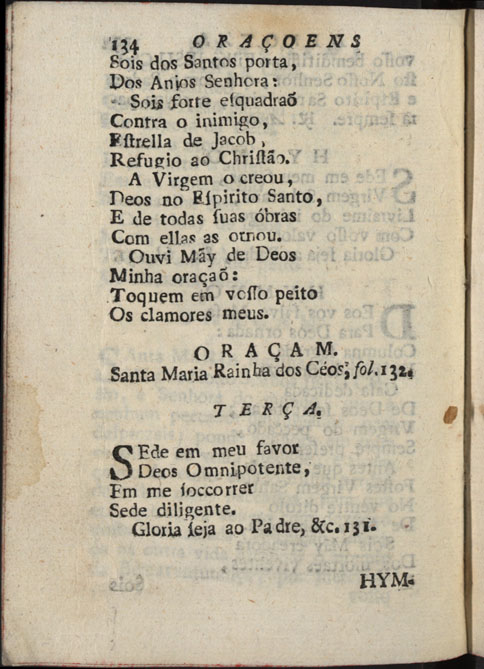 134 ORAÇOENS
Sois dos Santos porta,
Dos Anjos Senhora:
Sois forte eſquadraõ
Contra o inimigo,
Eſtrella de Jacob,
Refugio ao Chriſtão.
A Virgem o creou,
Deos no Eſpirito Santo,
E de todas ſuas óbras
Com ellas as ornou.
Ouvi Mãy de Deos
Minha oraçaõ:
Toquem em voſſo peito
Os clamores meus.
ORAÇAM.
Santa Maria Rainha dos Céos, fol. 132.
TERÇA.
SEde em meu favor
Deos Omnipotente,
Em me ſoccorrer
Sede diligente.
Gloria ſeja ao Padre, &c. 131.
HYM-